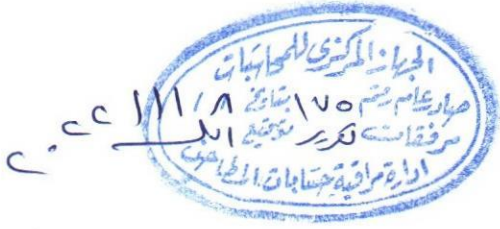 الجهاز المركزى للمحاسبات
صادر عام رقم ١٧٥ بتاريخ ٨ / ١١ / ٢٠٢٢
مرفقات تقرير توقيع
ادارة مراقبة حسابات المطاحن